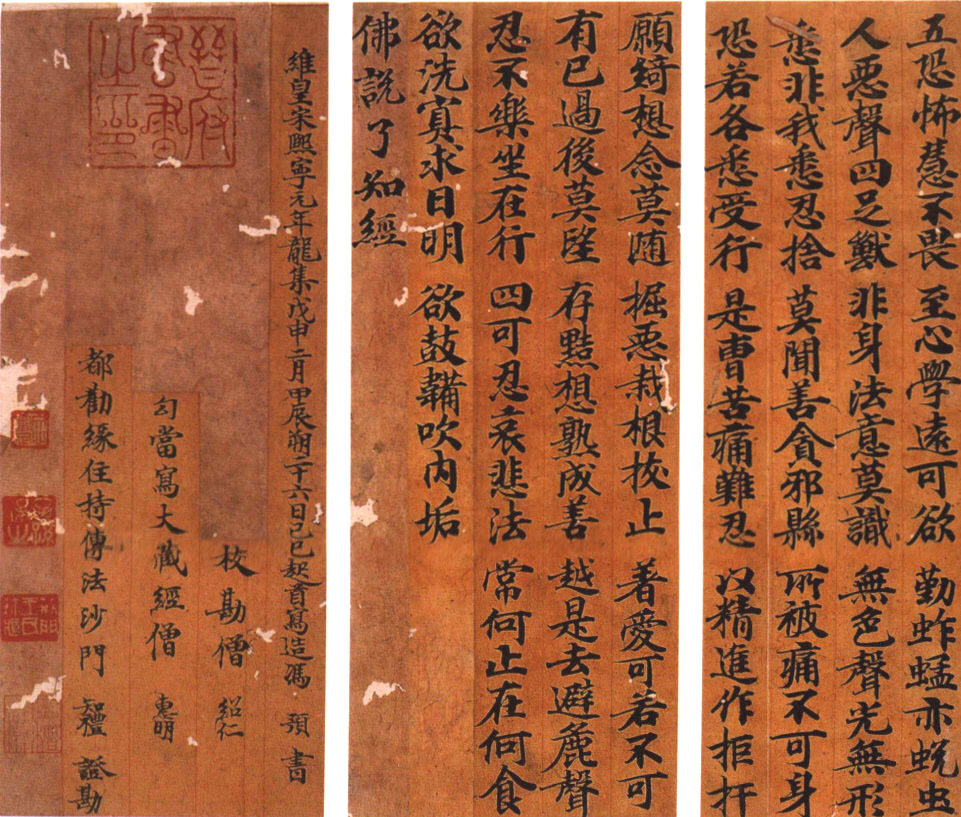 五恐怖慧不畏 至心學遠可欲 勤蚱蜢亦蛻虫
人惡聲四足獸 非身法意莫識 無色聲光無形
悉非我悉忍捨 莫聞善貪邪縣 所被痛不可身
恐若各悉受行 是曹苦痛難忍 以精進作拒扞
願綺想念莫随 掘惡栽根挍止 著愛可若不可
有已過後莫望 存黠想熟成善 越是去避麁聲
忍不樂坐在行 四可忍哀悲法 常何止在何食
欲洗寘求日明 欲鼓鞴吹内垢
佛說了知經
維皇宋熙寧元年龍集戊申二月甲辰朔二十六日己巳起首寫造馮 預 書
挍勘僧 紹仁
勾當寫大藏經僧 惠明
都勸緣住持傳法沙門 證勘
晉府書畫之印